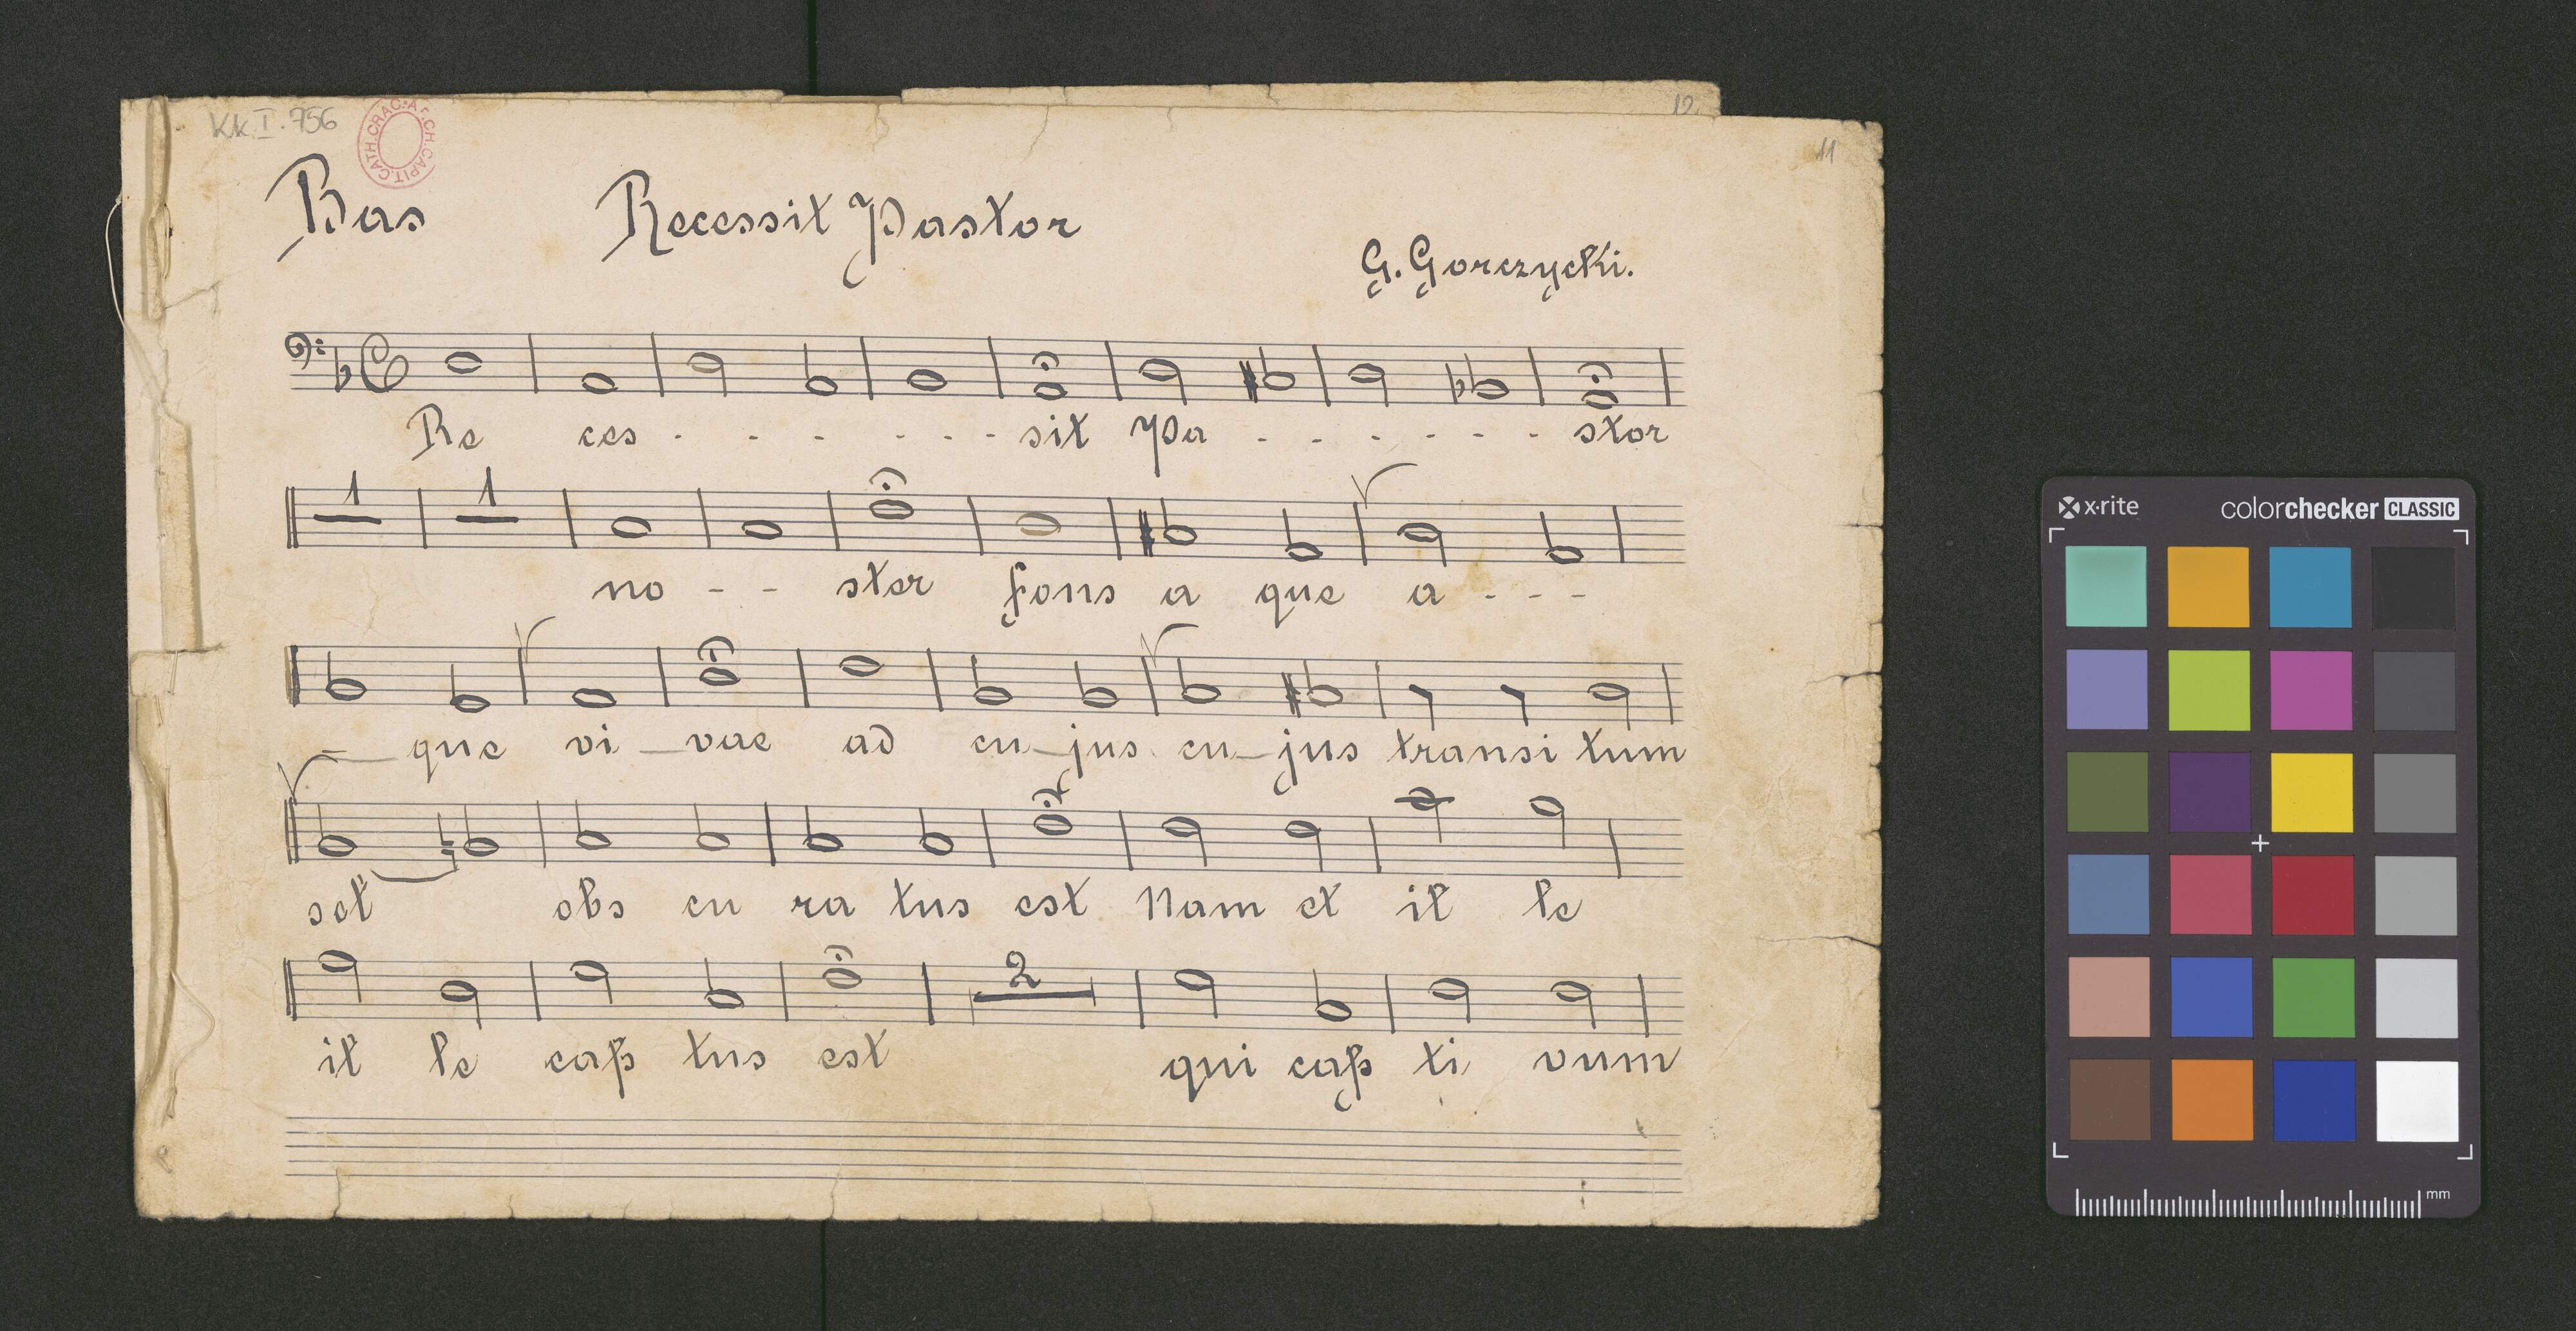 Kk. I. 756
CATH.CRAC.A.CH.CAPIT.
12
11
Bas Recessit Pastor
G. Gorczycki.
Re ces . - - - - - sit Pa - - - - - - stor
1 1
no - - ster fons a que a - - -
que vi - vae ad cu - jus cu - jus transi tum
sol obs cu ra tus est Nam et il le
2
il le cap tus est qui cap ti vum
x-rite colorchecker CLASSIC
mm